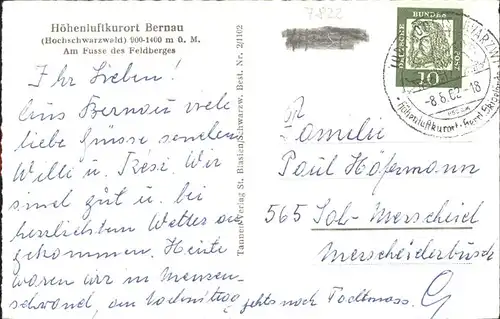 Höhenluftkurort Bernau
(Hochschwarzwald) 900-1400 m ü. M.
Am Fusse des Feldberges
Ihr Lieben!
Aus Bernau viele
liebe Grüsse, senden
Willi u. Resi. Wir
sind gut u. bei
herrlichstem Wetter
gekommen. Heute
waren wir in Menzen-
schwand, am gehts nach Todtmoos.
Tanner Verlag St. Blasien/Schwarzw. Best. Nr. 2/1162
7822
DEUTSCHE
BUNDES
POST
10
-8.6.62-18
Höhenluftkurort
Familie
Paul Höfermann
565 Sol-Merscheid
Merscheiderbusch